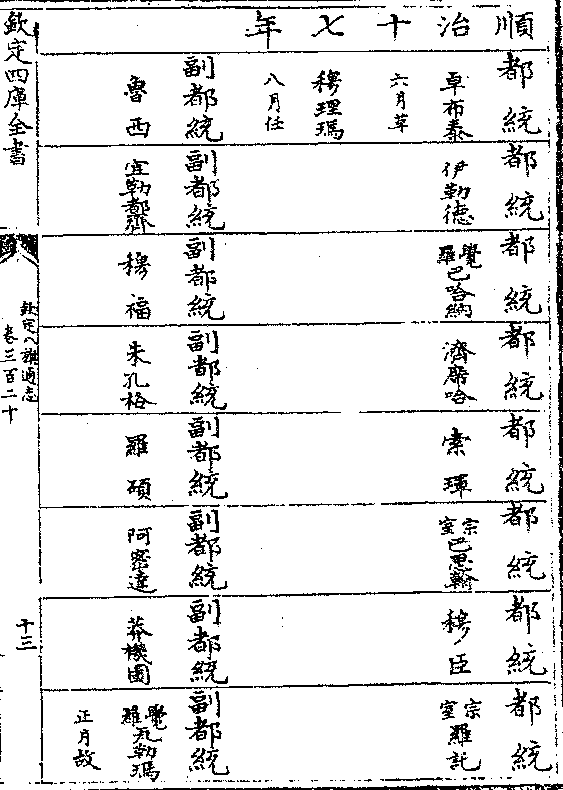 順治十七年
都統
卓布泰
六月革
穆理瑪
八月任
副都統
魯西
都統
伊勒德
副都統
宜勒都齊
都統
覺羅巴哈納
副都統
穆福
都統
濟席哈
副都統
朱孔格
都統
索琿
副都統
羅碩
都統
宗室巴思翰
副都統
阿密達
都統
穆臣
副都統
莽機圖
都統
宗室羅託
副都統
覺羅瓦勒瑪
正月故
欽定四庫全書
欽定八旗通志
卷三百二十
十三